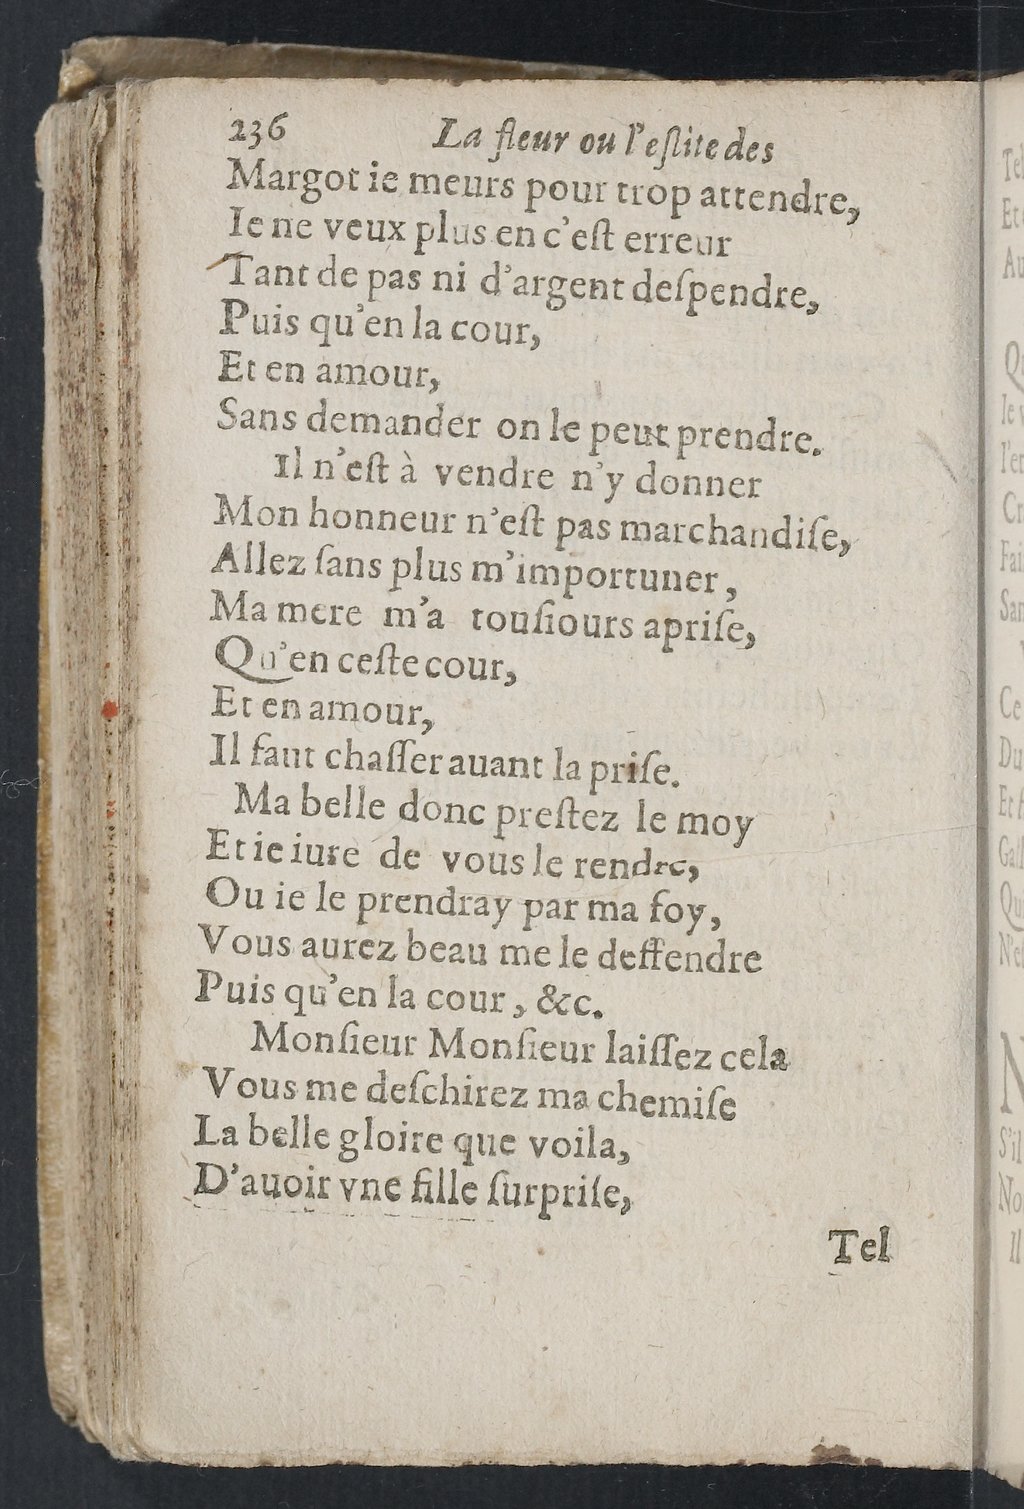 236 La fleur ou l'eſlite des
Margot ie meurs pour trop attendre,
Ie ne veux plus en c'eſt erreur
Tant de pas ni d'argent deſpendre,
Puis qu'en la cour,
Et en amour,
Sans demander on le peut prendre.
Il n'eſt à vendre n'y donner
Mon honneur n'eſt pas marchandiſe,
Allez ſans plus m'importuner,
Ma mere m'a touſiours apriſe,
Qu'en ceſte cour,
Et en amour,
Il faut chaſſer auant la priſe.
Ma belle donc preſtez le moy
Et ie iure de vous le rendre,
Ou ie le prendray par ma foy,
Vous aurez beau me le deffendre
Puis qu'en la cour, &c.
Monſieur Monſieur laiſſez cela
Vous me deſchirez ma chemiſe
La belle gloire que voila,
D'auoir vne fille ſurpriſe,
Tel